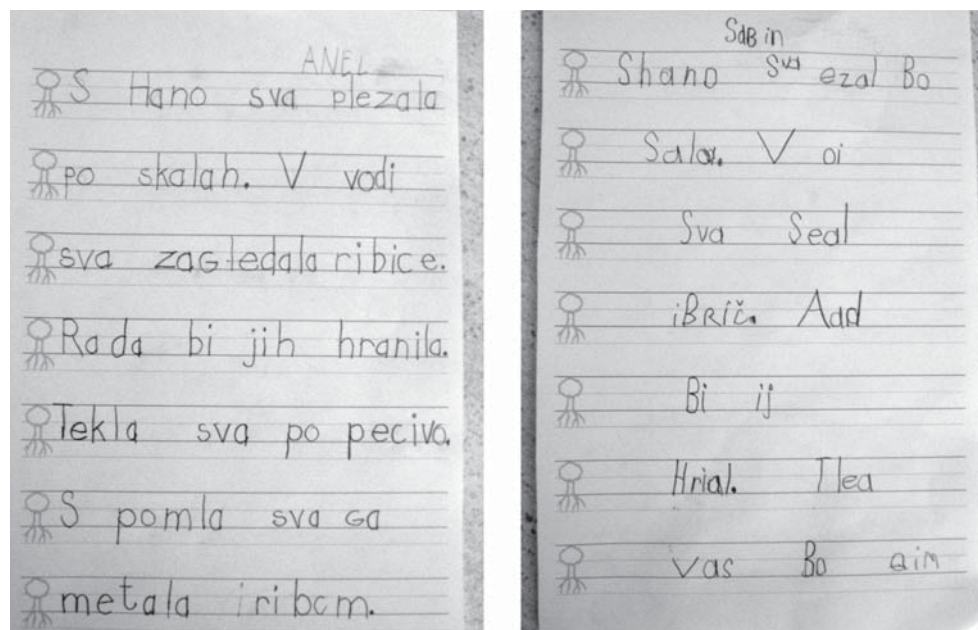 ANEL
S Hano sva plezala
po skalah. V vodi
sva zaGledala ribice.
Rada bi jih hranila.
Tekla sva po pecivo.
S pomla sva Ga
metala ribcm.
SaBin
Shano Sva ezal Bo
Salax. V oi
Sva Seal
iBRič. Aad
Bi ij
Hrial. Tlea
Vas Bo